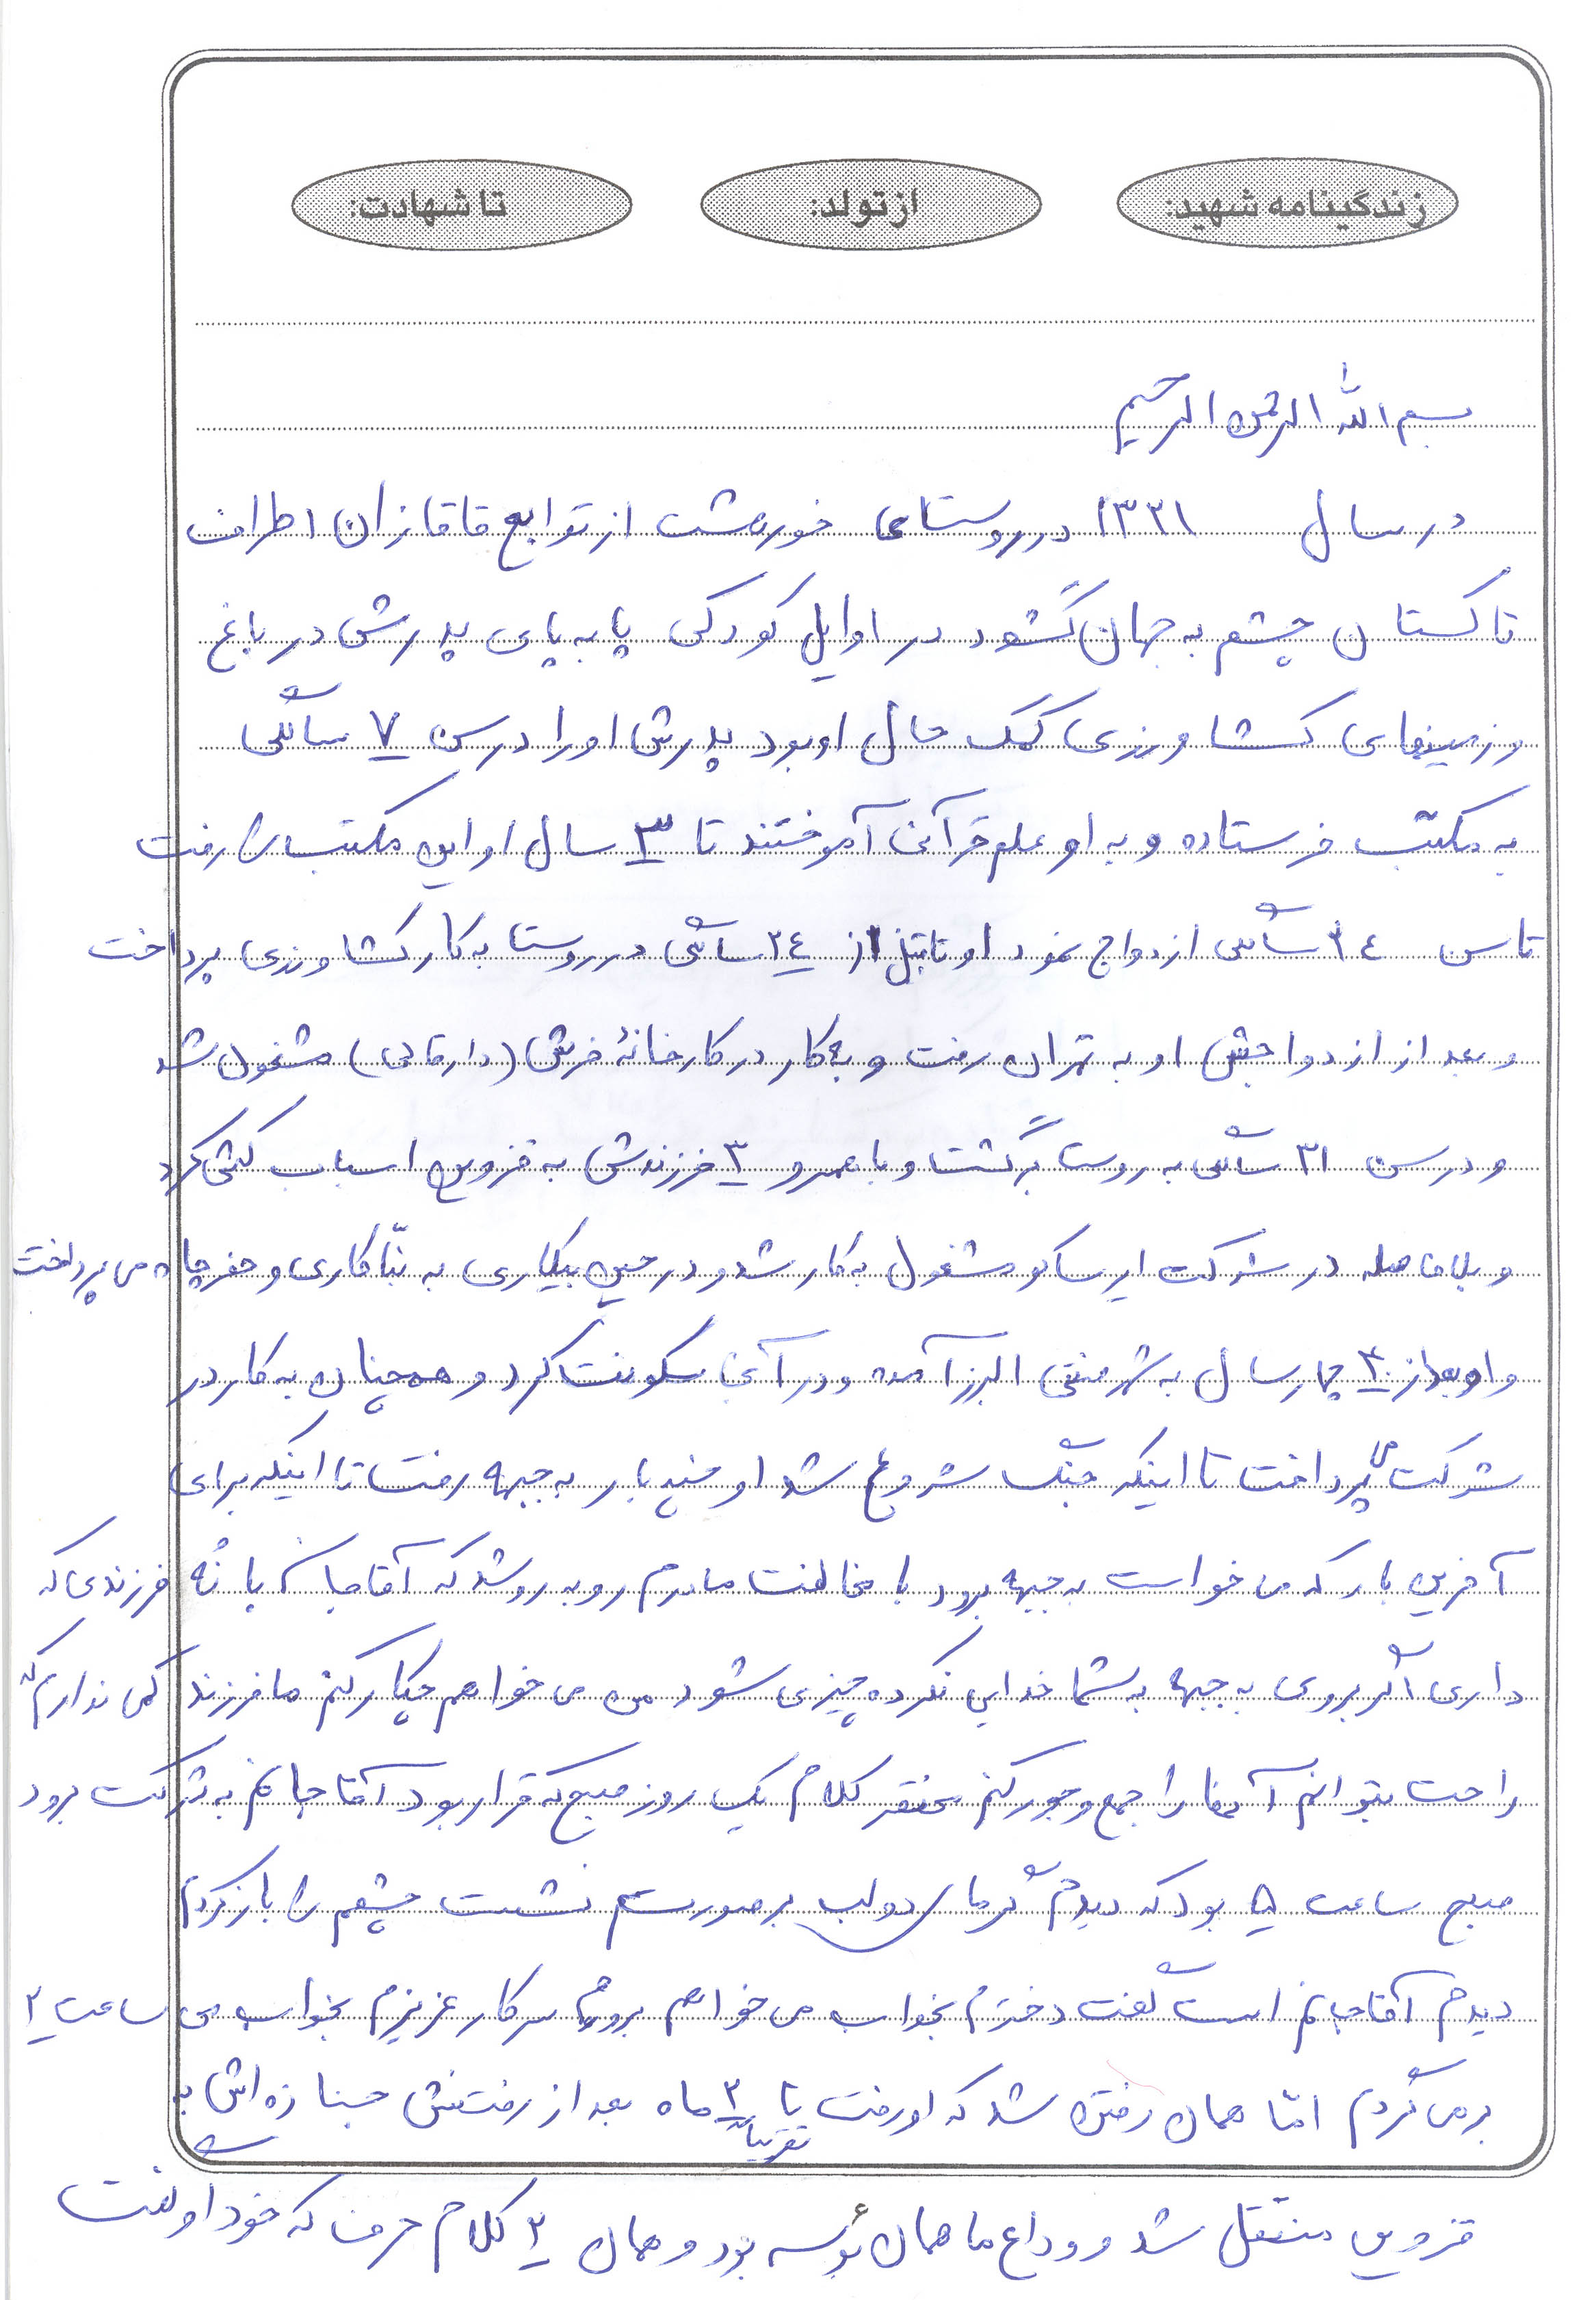 زندگینامه شهید: از تولد: تا شهادت:
بسم الله الرحمن الرحیم
در سال ۱۳۳۱ در روستای خورهشت از توابع قاقازان اطراف
تاکستان چشم به جهان گشود در اوایل کودکی پا به پای پدرش در باغ
و زمینهای کشاورزی کمک حال او بود پدرش او را در سن ۷ سالگی
به مکتب فرستاده و به او علم قرآنی آموختند تا ۳ سال او این مکتب را رفت
تا سن ۲۴ سالگی ازدواج نمود او تا قبل از ۲۴ سالگی در روستا به کار کشاورزی پرداخت
و بعد از ازدواجش او به تهران رفت و به کار در کارخانهٔ فرش (دار قالی) مشغول شد
و در سن ۳۱ سالگی به روستا برگشت و با همسر و ۳ فرزندش به قزوین اسباب کشی کرد
و بلافاصله در شرکت ایرساکو مشغول به کار شد و در حین بیکاری به بنّا کاری و حفر چاه می پرداخت
و او بعد از ۴ چهار سال به شهر صنعتی البرز آمده و در آنجا سکونت کرد و همچنان به کار در
شرکت می پرداخت تا اینکه جنگ شروع شد او چند بار به جبهه رفت تا اینکه برای
آخرین بار که می خواست به جبهه برود با مخالفت مادرم روبه رو شد که آقا جان با نُه فرزندی که
داری اگر بروی به جبهه به شما خدایی نکرده چیزی شود من می خواهم چیکار کنم ما فرزند کمی نداریم که
راحت بتوانم آنها را جمع و جور کنم مختصر کلام یک روز صبح که قرار بود آقا جانم به شرکت برود
صبح ساعت ۵ بود که دیدم گرمای دو لب بر صورتم نشست چشمم را باز کردم
دیدم آقا جانم است گفت دخترم بخواب می خواهم بروم سر کار عزیزم بخواب من ساعت ۲
برمی گردم امّا همان رفتن شد که او رفت تا تقریباً ۳ ماه بعد از رفتنش جنازه اش به
قزوین منتقل شد و وداع ما همان بوسه بود و همان ۲ کلام حرف که خود او گفت